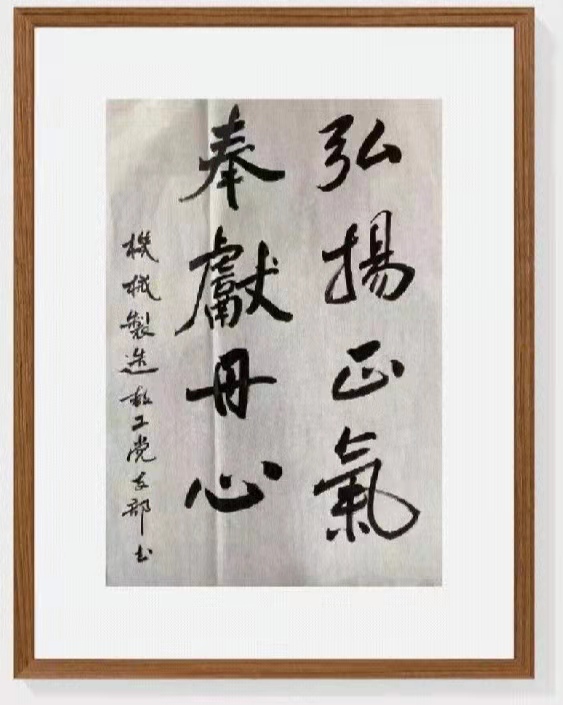 弘揚正氣
奉獻丹心
機械製造教工党支部书